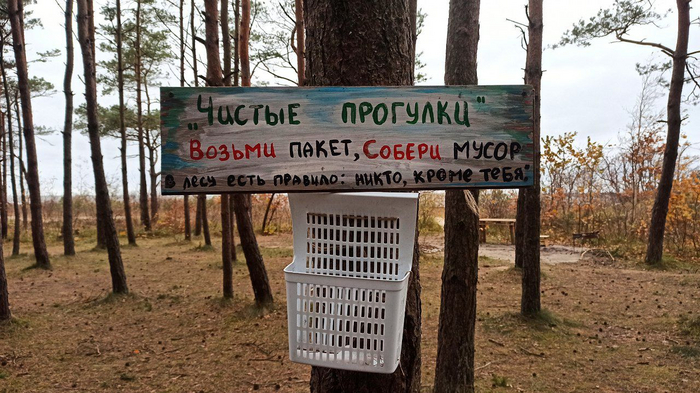 „Чистые прогулки"
Возьми пакет, Собери мусор
В лесу есть правило: никто, кроме тебя."